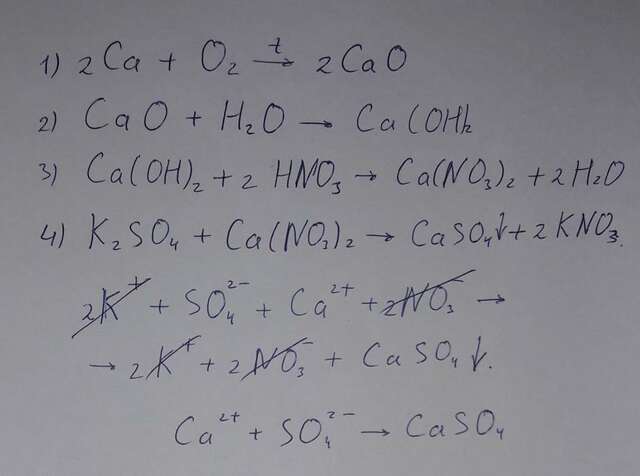 1) 2Ca + O₂ →ᵗ 2CaO
2) CaO + H₂O → Ca(OH)₂
3) Ca(OH)₂ + 2 HNO₃ → Ca(NO₃)₂ + 2H₂O
4) K₂SO₄ + Ca(NO₃)₂ → CaSO₄↓ + 2 KNO₃.
2K⁺ + SO₄²⁻ + Ca²⁺ + 2NO₃⁻ →
→ 2K⁺ + 2NO₃⁻ + CaSO₄↓.
Ca²⁺ + SO₄²⁻ → CaSO₄